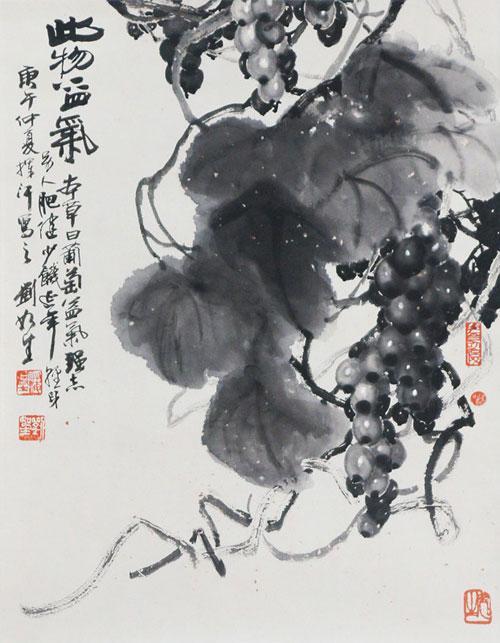 此物益氣
本草曰葡萄益氣強志
令人肥健少饑延年輕身
庚午仲夏揮汗寫之 劉生